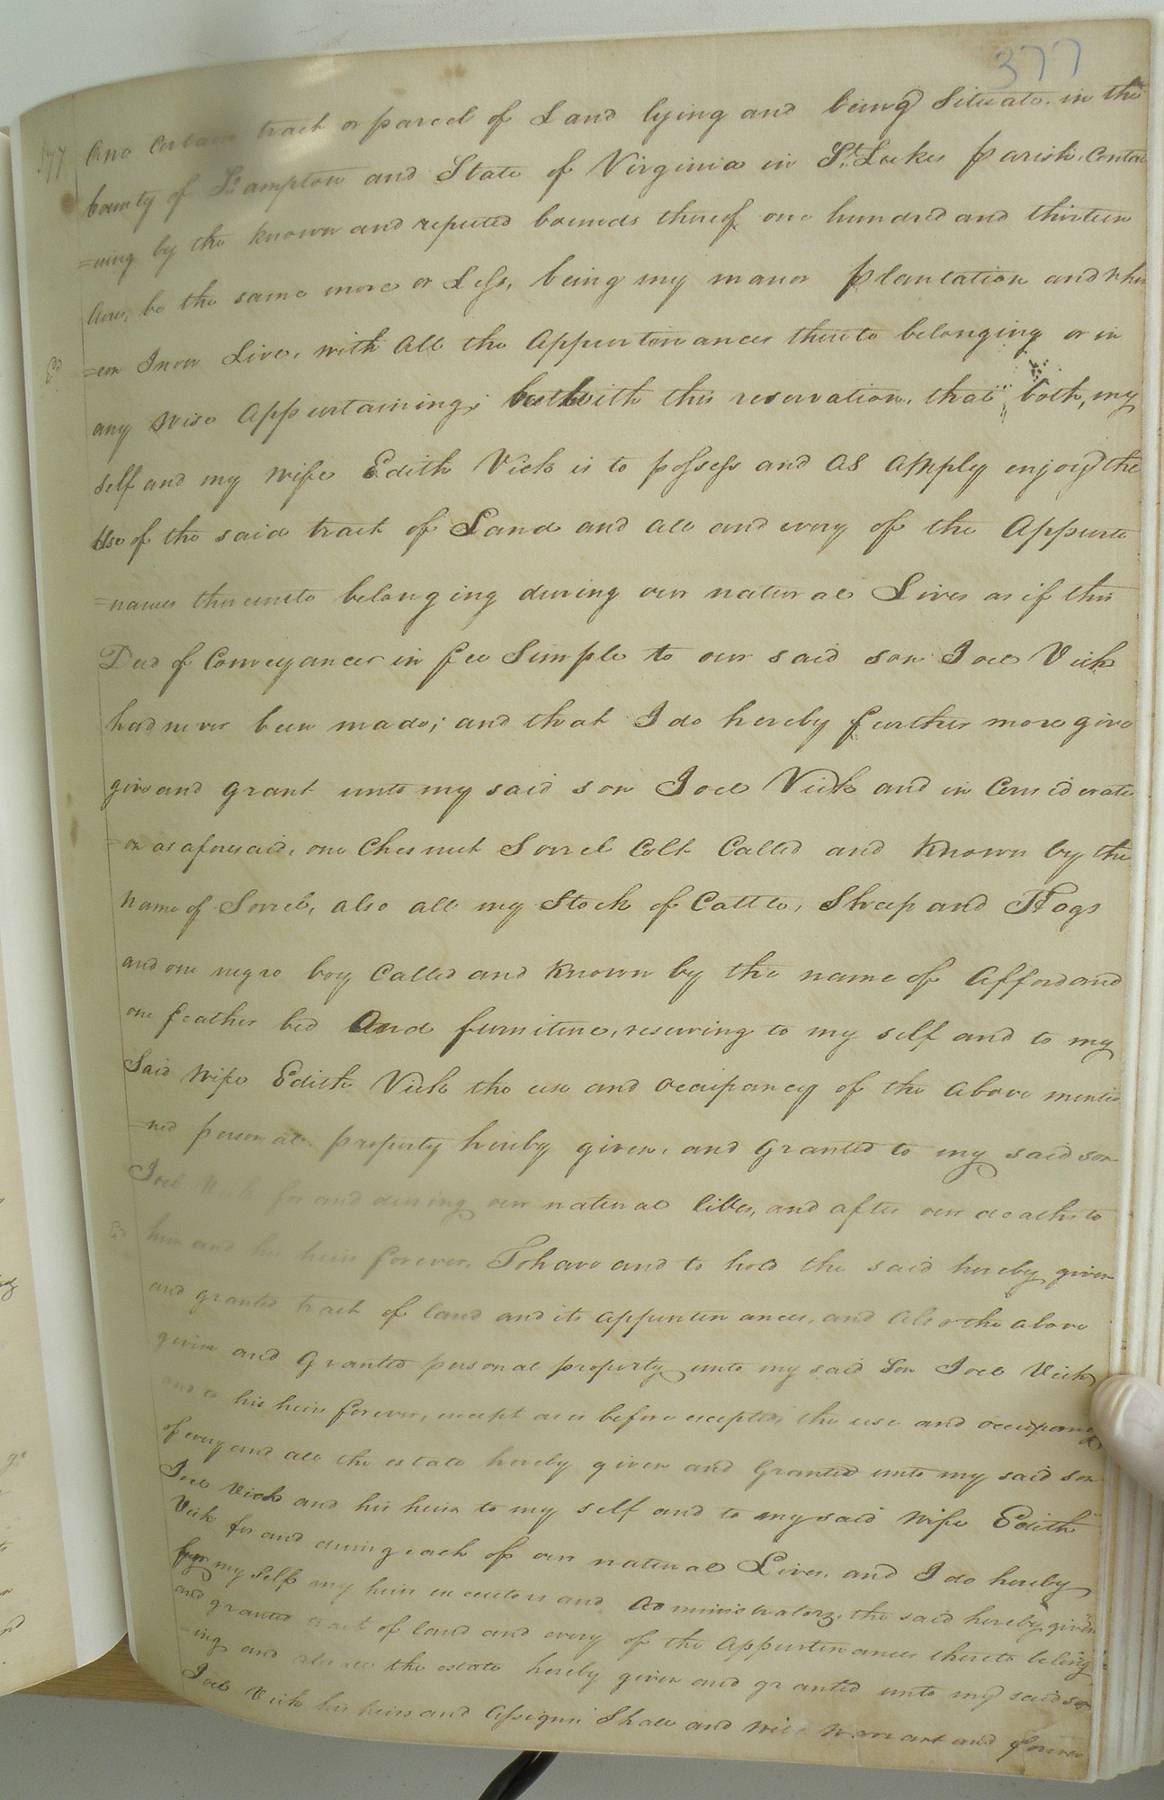 377
177 One certain tract or parcel of Land lying and being Situate in the
County of So.ampton and State of Virginia in St. Lukes parish, Contai
=ning by the known and reputed bounds thereof one hundred and thirteen
Acres, be the same more or Less, being my manor plantation and wher
=eon I now Live, with all the Appurtenances thereto belonging or in
any wise Appurtaining; but with this reservation, that both, my
self and my wife Edith Vick is to possess and as amply enjoy the
Use of the said tract of Land and all and every of the Appurte
=nances thereunto belonging during our natural Lives as if this
Deed of Conveyance in fee Simple to our said son Joel Vick
had never been made; and that I do hereby further more give
give and grant unto my said son Joel Vick and in Considerati
=on as aforesaid, one Chesnut Sorrel Colt Called and Known by the
name of Sorrel, also all my Stock of Cattle, Sheep and Hogs
and one negro boy Called and Known by the name of Afford and
one feather bed And furniture, reserving to my self and to my
Said Wife Edith Vick the use and occupancy of the above mentio
=ned personal property hereby given, and granted to my said son
Joel Vick for and during our natural lives, and after our deaths to
him and his heirs forever. To have and to hold the said hereby given
and granted tract of land and its appurtenances, and also the above
given and Granted personal property unto my said Son Joel Vick
and to his heirs forever, except as is before excepted the use and occupancy
of every and all the estate hereby given and Granted unto my said son
Joel Vick and his heirs to my self and to my said Wife Edith
Vick for and during each of our natural Lives, and I do hereby
for my Self my heirs executors and Administrators, the said hereby given
and granted tract of land and every of the Appurtenances thereto belong
=ing and also all the estate hereby given and granted unto my said son
Joel Vick his heirs and Assigns Shall and will Warrant and forever